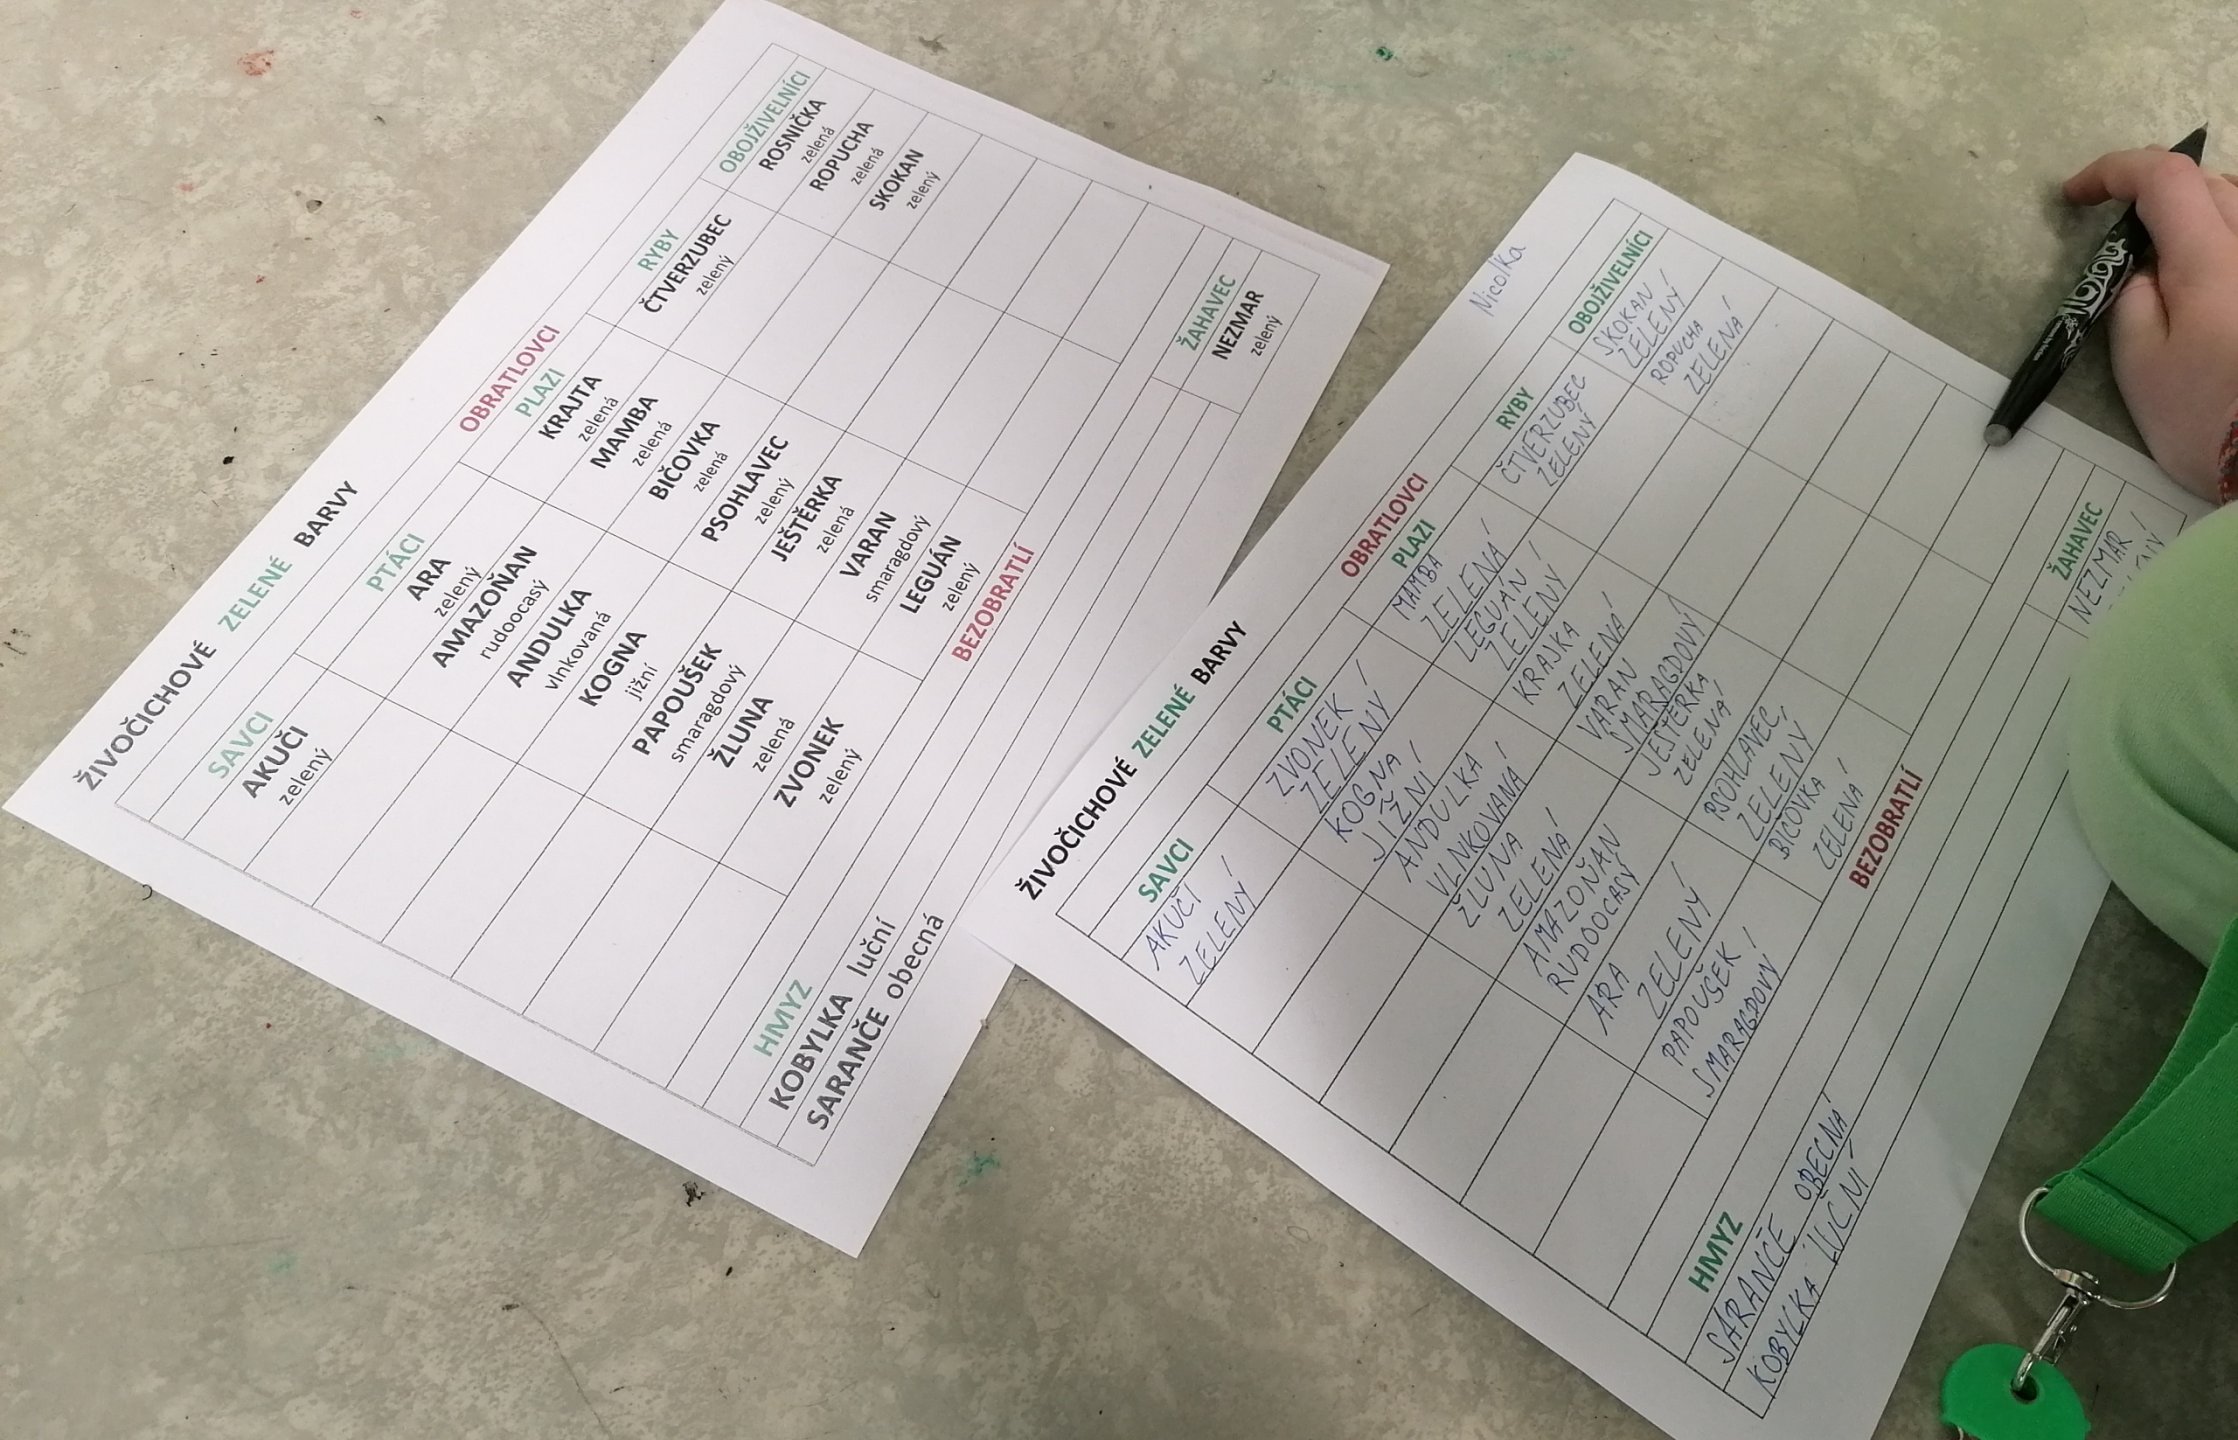 ŽIVOČICHOVÉ ZELENÉ BARVY
OBRATLOVCI
SAVCI
AKUČI
zelený
PTÁCI
ARA
zelený
AMAZOŇAN
rudoocasý
ANDULKA
vlnkovaná
KOGNA
jižní
PAPOUŠEK
smaragdový
ŽLUNA
zelená
ZVONEK
zelený
PLAZI
KRAJTA
zelená
MAMBA
zelená
BIČOVKA
zelená
PSOHLAVEC
zelený
JEŠTĚRKA
zelená
VARAN
smaragdový
LEGUÁN
zelený
RYBY
ČTVERZUBEC
zelený
OBOJŽIVELNÍCI
ROSNIČKA
zelená
ROPUCHA
zelená
SKOKAN
zelený
BEZOBRATLÍ
HMYZ
KOBYLKA luční
SARANČE obecná
ŽAHAVEC
NEZMAR
zelený
Nicolka
ŽIVOČICHOVÉ ZELENÉ BARVY
OBRATLOVCI
SAVCI
AKUČI
ZELENÝ
PTÁCI
ZVONEK
ZELENÝ
KOGNA
JIŽNÍ
ANDULKA
VLNKOVANÁ
ŽLUNA
ZELENÁ
AMAZOŇAN
RUDOOCASÝ
ARA
ZELENÝ
PAPOUŠEK
SMARAGDOVÝ
PLAZI
MAMBA
ZELENÁ
LEGUÁN
ZELENÝ
KRAJKA
ZELENÁ
VARAN
SMARAGDOVÝ
JEŠTĚRKA
ZELENÁ
PSOHLAVEC
ZELENÝ
BIČOVKA
ZELENÁ
RYBY
ČTVERZUBEC
ZELENÝ
OBOJŽIVELNÍCI
SKOKAN
ZELENÝ
ROPUCHA
ZELENÁ
BEZOBRATLÍ
HMYZ
SARANČE OBECNÁ
KOBYLKA LUČNÍ
ŽAHAVEC
NEZMAR